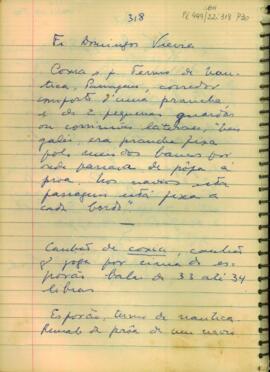 318
Fr Domingos Vieira
Coxia s. f. Termo de nau-
tica, Passagem, corredor
composto d'uma prancha
e de 2 pequenas
ou corrimões lateraes, "nas
galés, era prancha fixa
pelo meio dos bancos por
onde passava de pôpa à
prôa. Nos navios esta
passagem está fixa a
cada bordo".
Canhão de coxia, canhão
q̃ joga por cima do es-
porão balas de 33 até 34
libras
Esporão, termo de nautica.
Remate da prôa de um navio